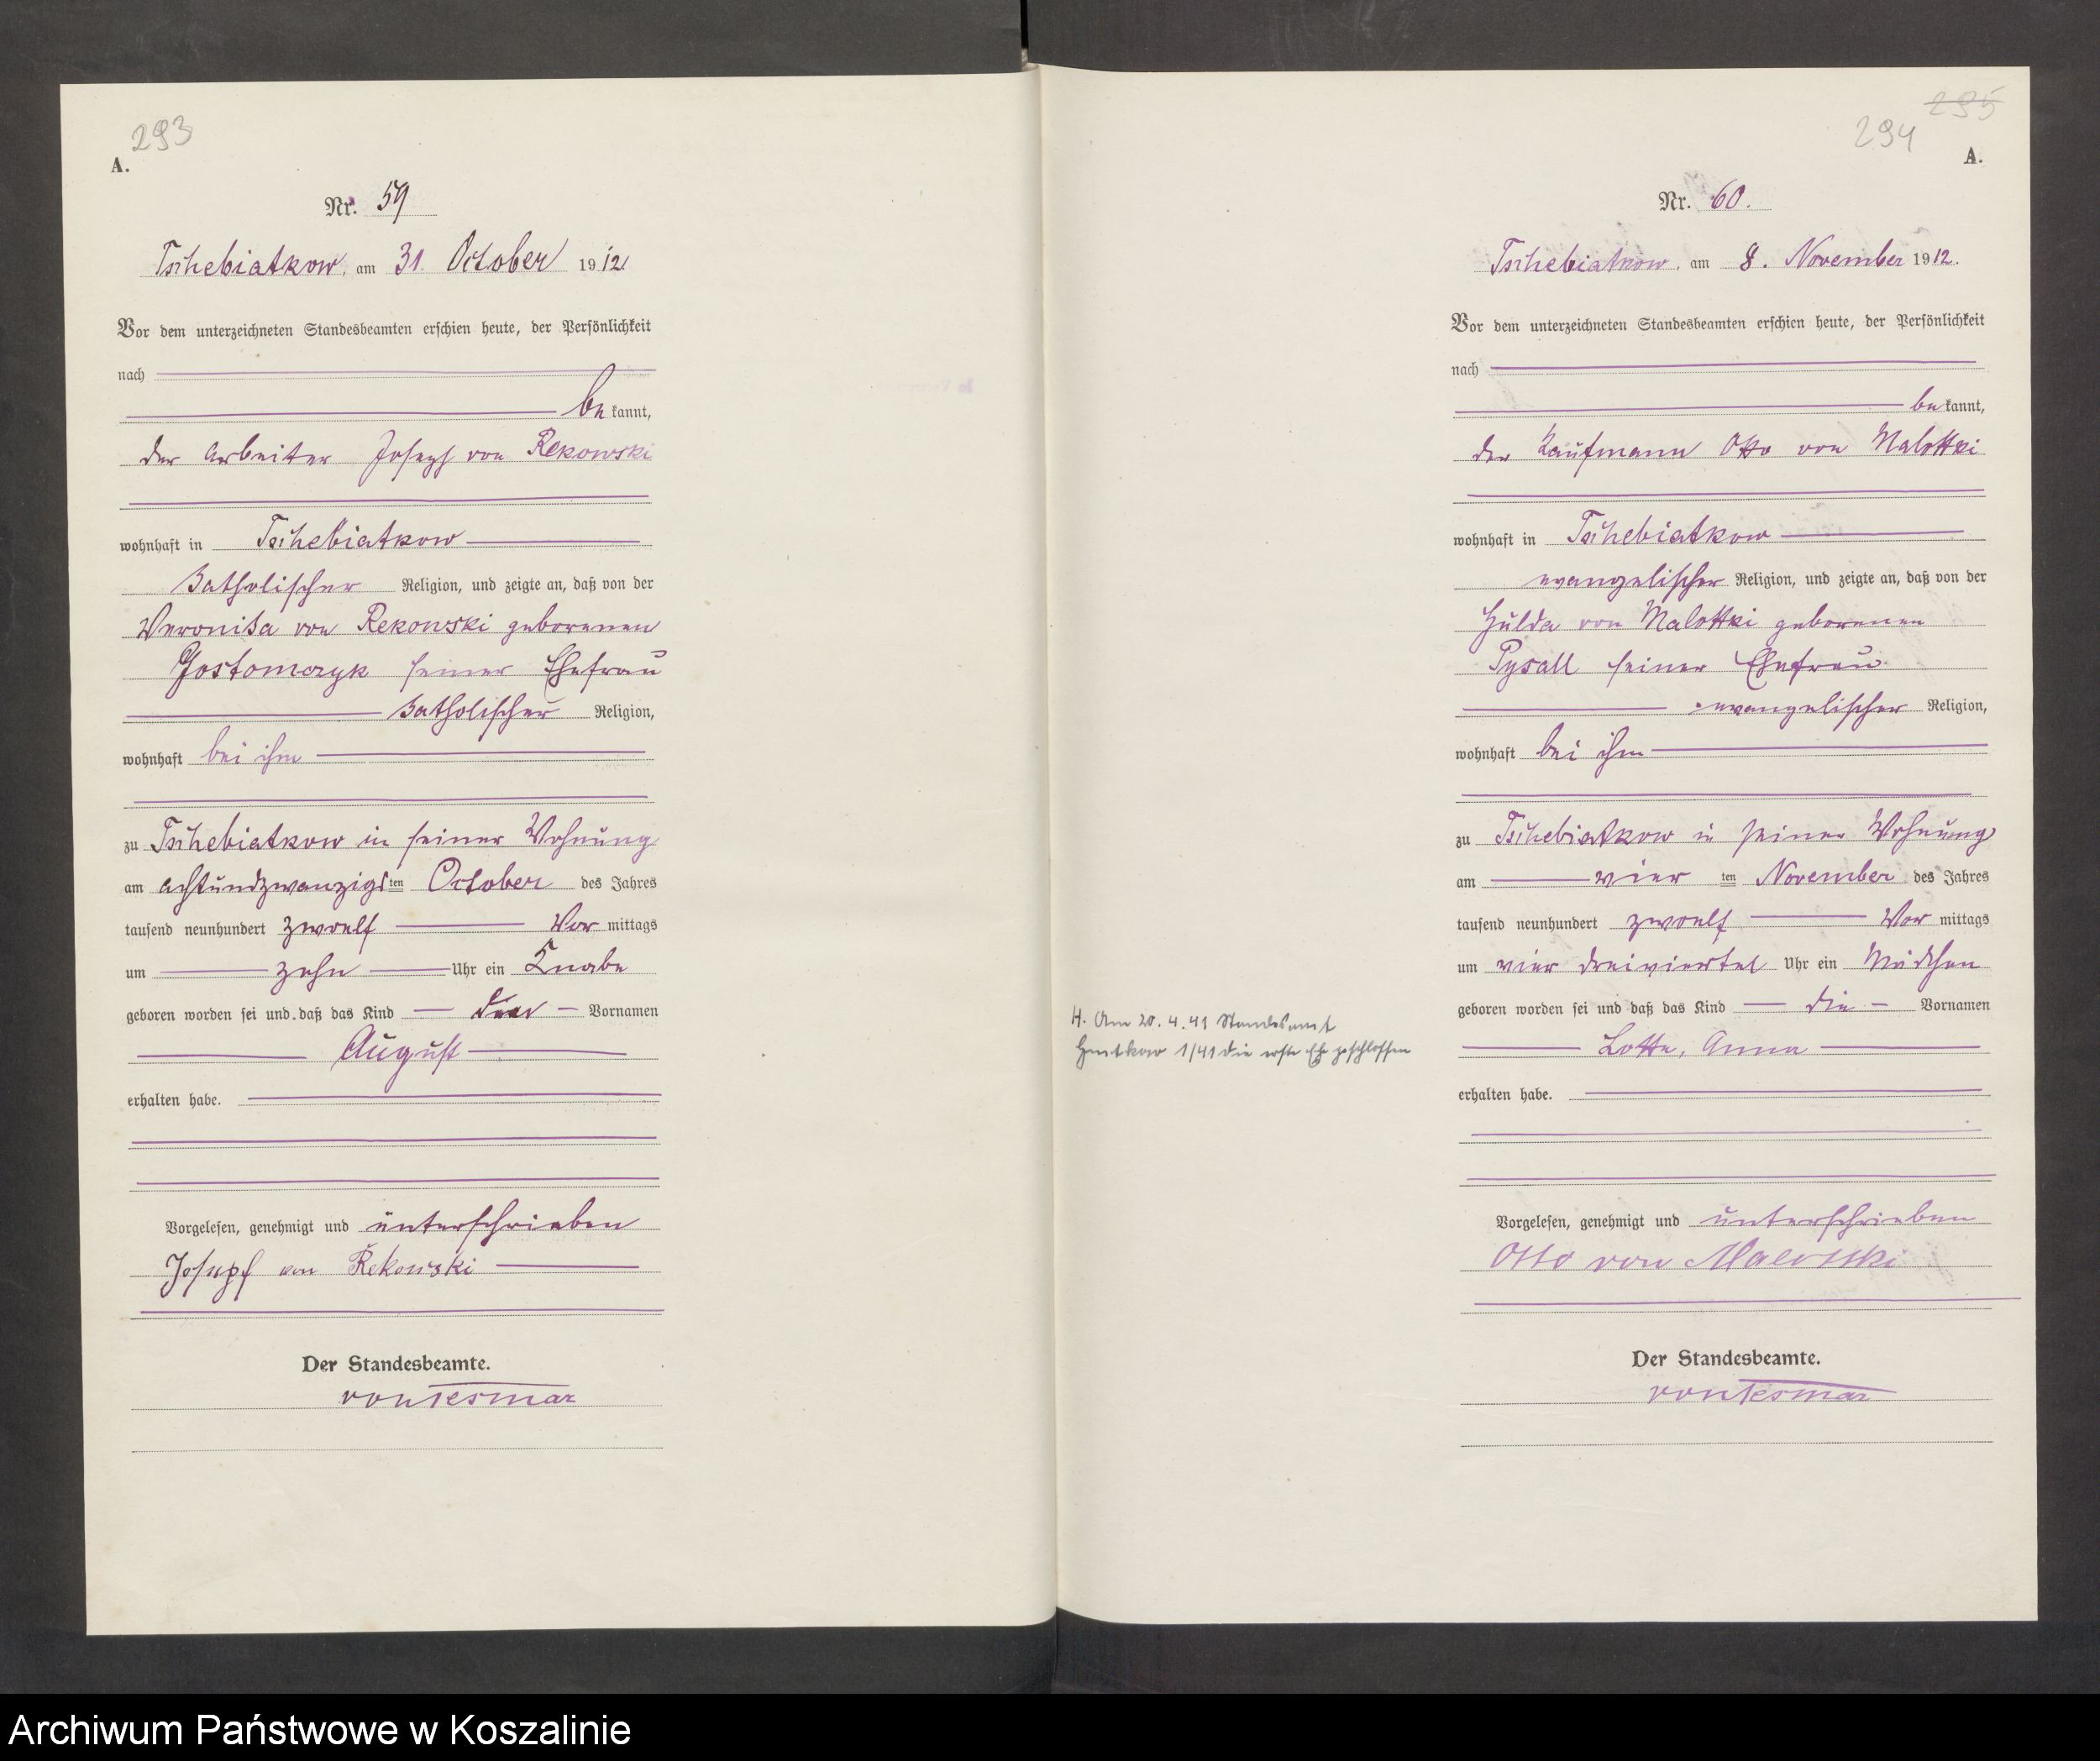 293
A.
Nr. 59
Tschebiatkow, am 31. October 1912
Vor dem unterzeichneten Standesbeamten erschien heute, der Persönlichkeit
nach
bekannt,
der Arbeiter Joseph von Rekowski
wohnhaft in Tschebiatkow
katholischer Religion, und zeigte an, daß von der
Veronika von Rekowski geborenen
Gostomczyk seiner Ehefrau
katholischer Religion,
wohnhaft bei ihm
zu Tschebiatkow in seiner Wohnung
am achtundzwanzigsten October des Jahres
tausend neunhundert zwoelf Vor mittags
um zehn Uhr ein Knabe
geboren worden sei und daß das Kind den Vornamen
August
erhalten habe.
Vorgelesen, genehmigt und unterschrieben
Joseph von Rekowski
Der Standesbeamte.
von Tesmar
295
294
A.
Nr. 60.
Tschebiatkow, am 8. November 1912.
Vor dem unterzeichneten Standesbeamten erschien heute, der Persönlichkeit
nach
bekannt,
der Kaufmann Otto von Malottki
wohnhaft in Tschebiatkow
evangelischer Religion, und zeigte an, daß von der
Hulda von Malottki geborenen
Pysall seiner Ehefrau
evangelischer Religion,
wohnhaft bei ihm
zu Tschebiatkow in seiner Wohnung
am vierten November des Jahres
tausend neunhundert zwoelf Vor mittags
um vier dreiviertel Uhr ein Mädchen
geboren worden sei und daß das Kind die Vornamen
Lotte, Anna
erhalten habe.
Vorgelesen, genehmigt und unterschrieben
Otto von Malottki
Der Standesbeamte.
von Tesmar
H. Am 20.4.41 Standesamt
1/41 die erste Ehe geschlossen
Archiwum Państwowe w Koszalinie